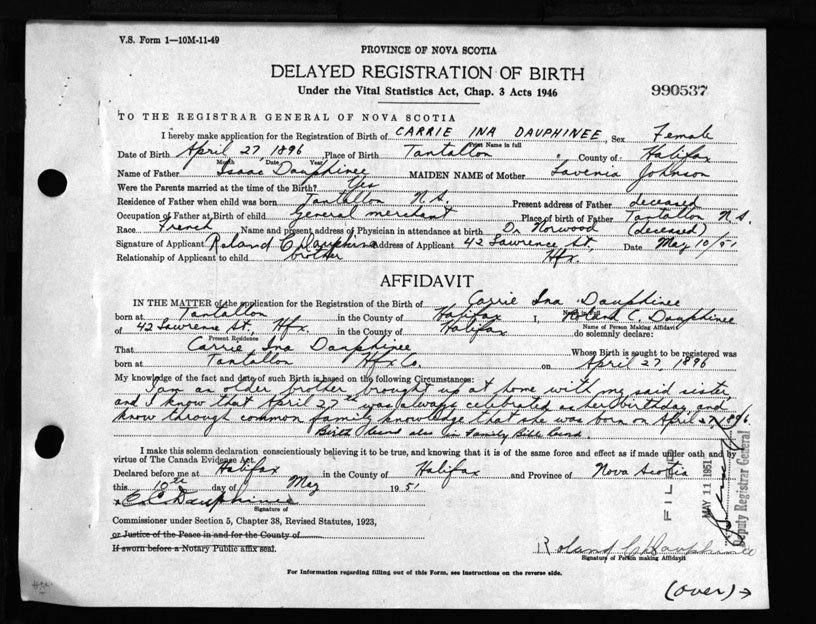 V.S. Form 1—10M-11-49
PROVINCE OF NOVA SCOTIA
DELAYED REGISTRATION OF BIRTH
Under the Vital Statistics Act, Chap. 3 Acts 1946
990537
TO THE REGISTRAR GENERAL OF NOVA SCOTIA
I hereby make application for the Registration of Birth of CARRIE INA DAUPHINEE, Sex Female
Print Name in full
Date of Birth April 27, 1896 Place of Birth Tantallon " County of Halifax
Month Date Year
Name of Father Isaac Dauphinee MAIDEN NAME of Mother Lavenia Johnson
Were the Parents married at the time of the Birth? Yes
Residence of Father when child was born Tantallon N.S. Present address of Father deceased
Occupation of Father at Birth of child General merchant Place of birth of Father Tantallon N.S.
Race French Name and present address of Physician in attendance at birth Dr Norwood (deceased)
Signature of Applicant Roland C Dauphinee Address of Applicant 42 Lawrence St, Date May 10/51
Relationship of Applicant to child brother Hfx.
AFFIDAVIT
IN THE MATTER of the application for the Registration of the Birth of Carrie Ina Dauphinee
born at Tantallon in the County of Halifax I, Roland C. Dauphinee
Name of Person Making Affidavit
of 42 Lawrence St., Hfx. in the County of Halifax do solemnly declare:
Present Residence
That Carrie Ina Dauphinee Whose Birth is sought to be registered was
born at Tantallon Hfx Co. on April 27, 1896
My knowledge of the fact and date of such Birth is based on the following Circumstances:
I am an older brother brought up at home with my said sister,
and I know that April 27th was always celebrated as her birthday and
know through common family knowledge that she was born on April 27 1896.
Birth also in Family Bible
I make this solemn declaration conscientiously believing it to be true, and knowing that it is of the same force and effect as if made under oath and by
virtue of The Canada Evidence Act.
Declared before me at Halifax in the County of Halifax and Province of Nova Scotia
this 10th day of May 1951
Dauphinee
Signature of
Commissioner under Section 5, Chapter 38, Revised Statutes, 1923,
or Justice of the Peace in and for the County of
If sworn before a Notary Public affix seal.
Roland C Dauphinee
Signature of Person making Affidavit
FILED
MAY 11 1951
Deputy Registrar General
For Information regarding filling out of this Form, see instructions on the reverse side.
(over) →